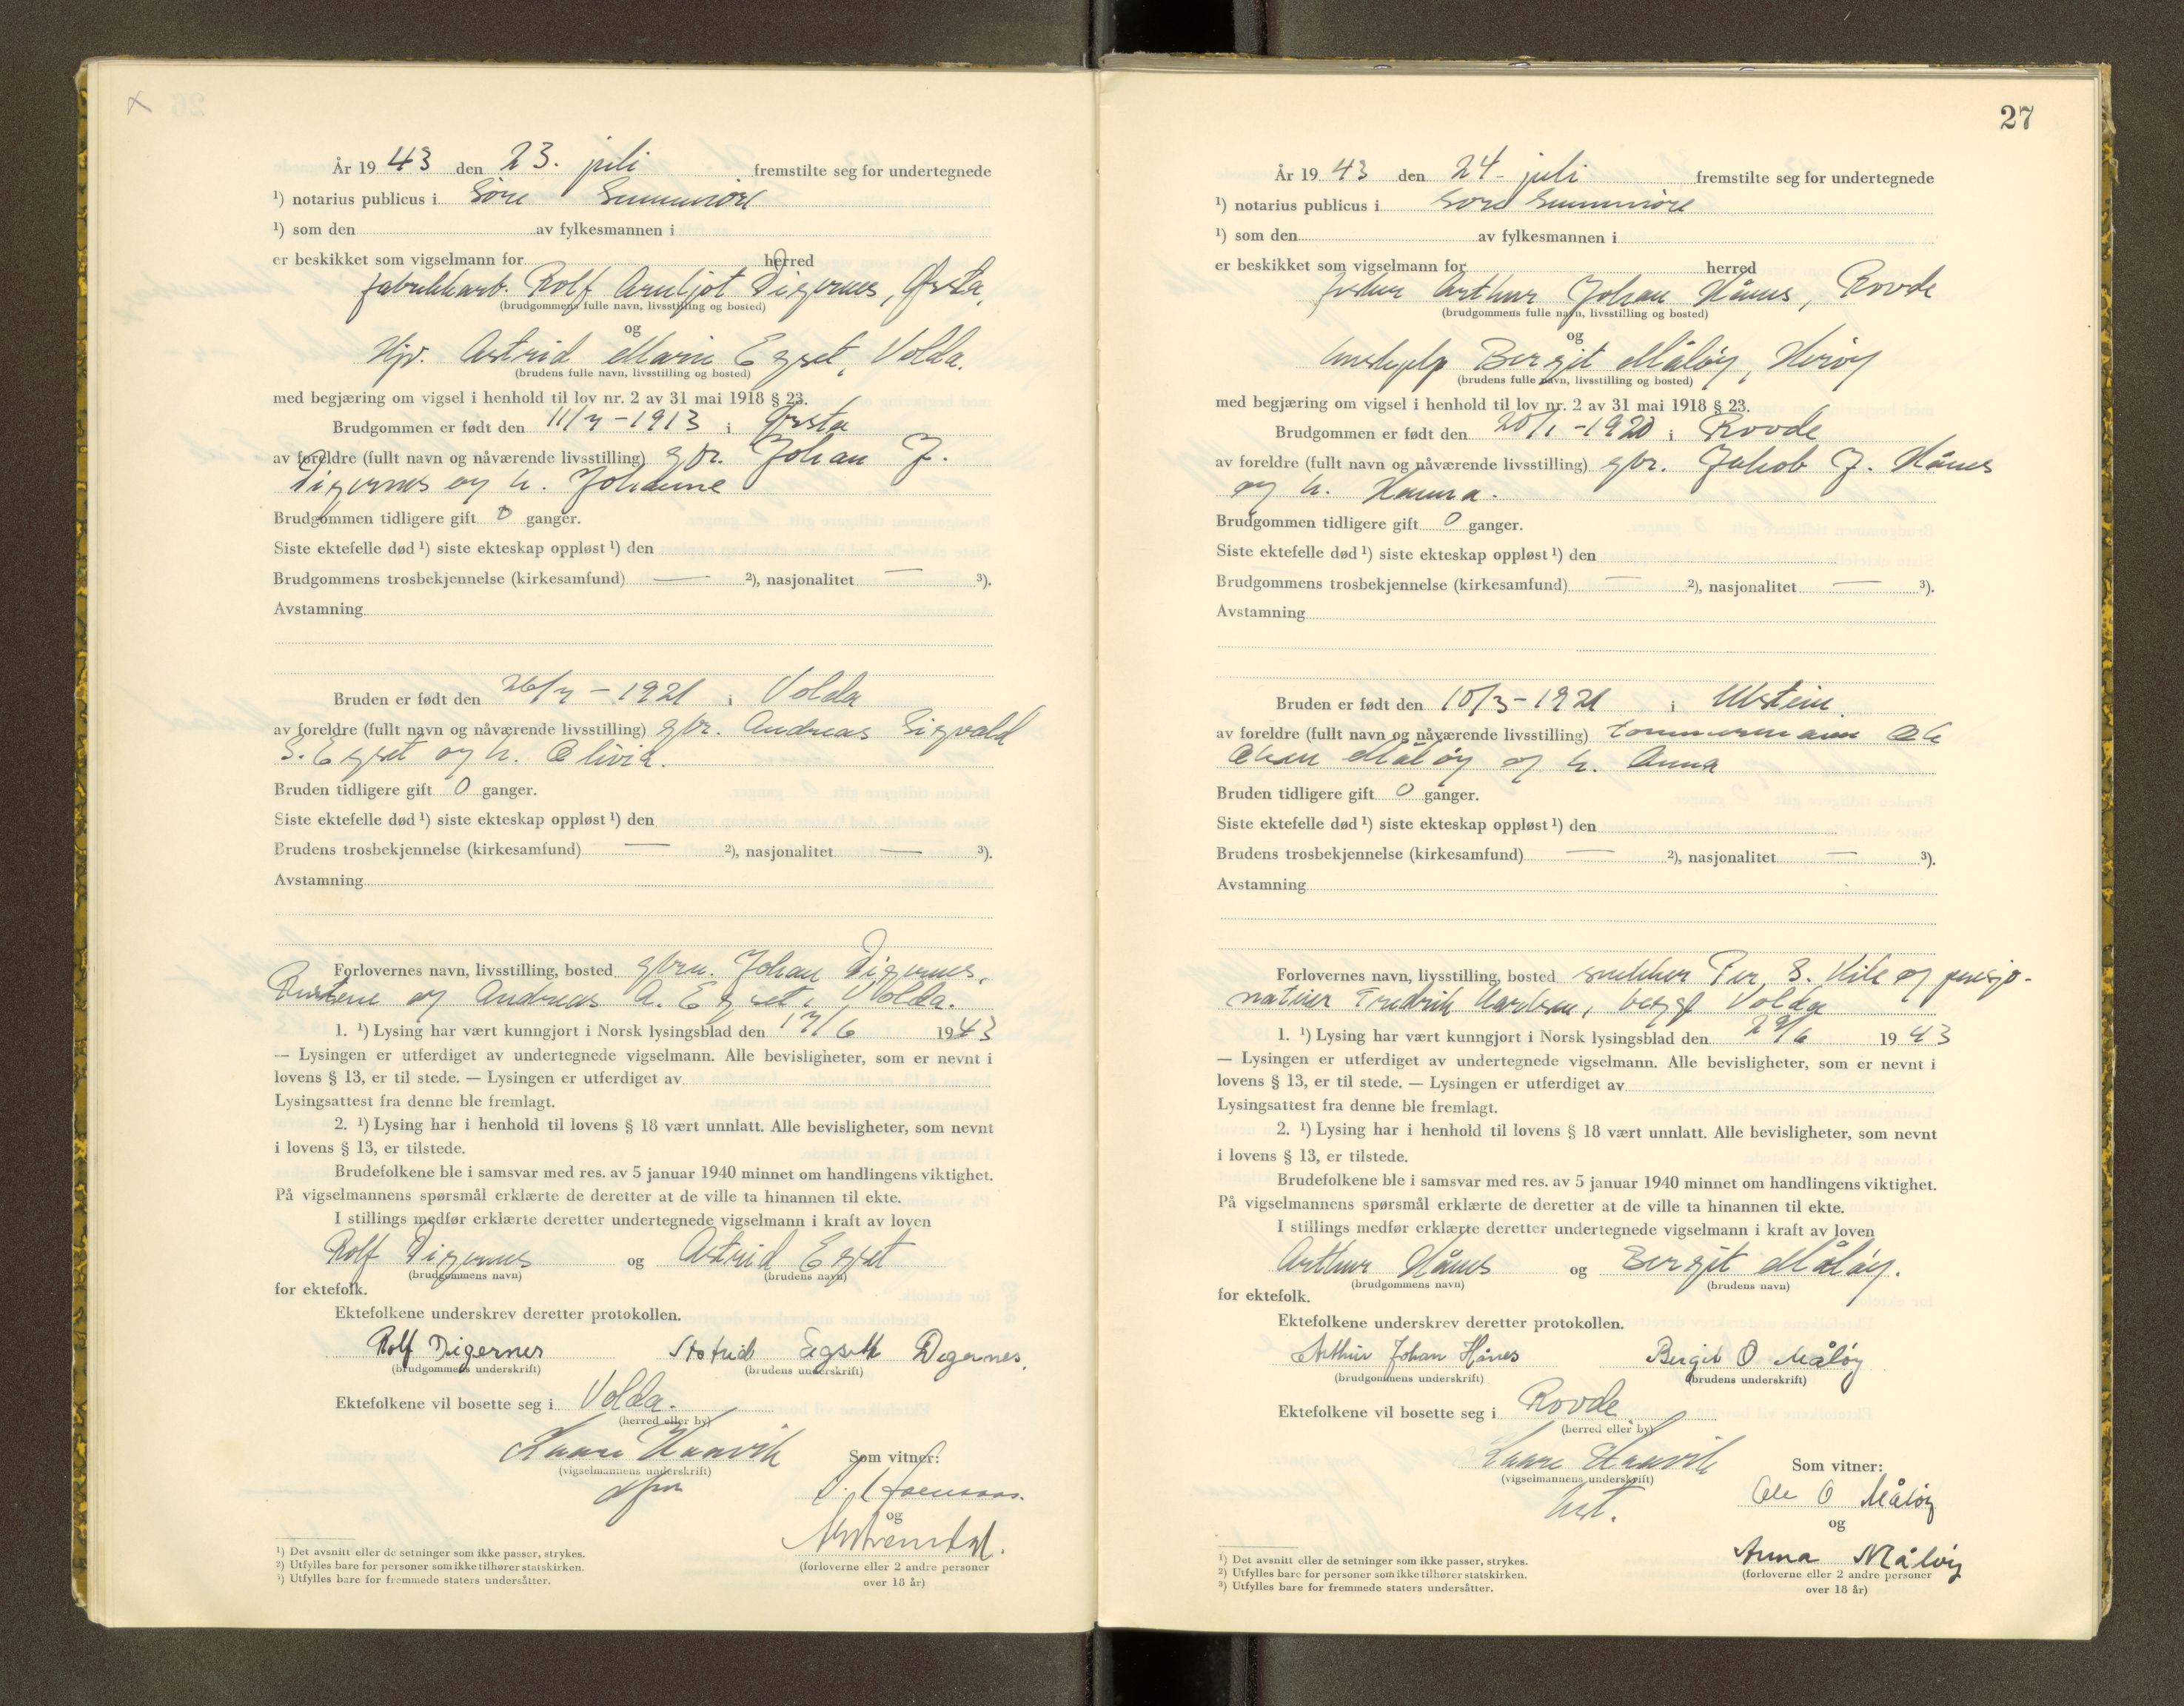 År 19 43 den 23. juli fremstilte seg for undertegnede
¹) notarius publicus i Söre Sunnmöre
¹) som den av fylkesmannen i
er beskikket som vigselmann for herred
fabrikkarb. Rolf Arnljot Digernes, Ørsta,
(brudgommens fulle navn, livsstilling og bosted)
og
Hjv. Astrid Marie Egset, Volda.
(brudens fulle navn, livsstilling og bosted)
med begjæring om vigsel i henhold til lov nr. 2 av 31 mai 1918 § 23.
Brudgommen er født den 11/7-1913 i Ørsta
av foreldre (fullt navn og nåværende livsstilling) gbr. Johan J.
Digernes og h. Johanne
Brudgommen tidligere gift 0 ganger.
Siste ektefelle død ¹) siste ekteskap oppløst ¹) den
Brudgommens trosbekjennelse (kirkesamfund) — ²), nasjonalitet — ³).
Avstamning
Bruden er født den 26/7 - 1921 i Volda
av foreldre (fullt navn og nåværende livsstilling) gbr. Andreas Sigvald
S. Egset og h. Olivia.
Bruden tidligere gift 0 ganger.
Siste ektefelle død ¹) siste ekteskap oppløst ¹) den
Brudens trosbekjennelse (kirkesamfund) — ²), nasjonalitet — ³).
Avstamning
Forlovernes navn, livsstilling, bosted gbrn. Johan Digernes,
og Andreas A. Egset, Volda.
1. ¹) Lysing har vært kunngjort i Norsk lysingsblad den 17/6 1943
— Lysingen er utferdiget av undertegnede vigselmann. Alle bevisligheter, som er nevnt i
lovens § 13, er til stede. — Lysingen er utferdiget av
Lysingsattest fra denne ble fremlagt.
2. ¹) Lysing har i henhold til lovens § 18 vært unnlatt. Alle bevisligheter, som nevnt
i lovens § 13, er tilstede.
Brudefolkene ble i samsvar med res. av 5 januar 1940 minnet om handlingens viktighet.
På vigselmannens spørsmål erklærte de deretter at de ville ta hinannen til ekte.
I stillings medfør erklærte deretter undertegnede vigselmann i kraft av loven
Rolf Digernes og Astrid Egset
(brudgommens navn) (brudens navn)
for ektefolk.
Ektefolkene underskrev deretter protokollen.
Rolf Digernes Astrid Egseth Digernes.
(brudgommens underskrift) (brudens underskrift)
Ektefolkene vil bosette seg i Volda.
(herred eller by)
Kaare Haavik Som vitner:
(vigselmannens underskrift)
og
(forloverne eller 2 andre personer
over 18 år)
¹) Det avsnitt eller de setninger som ikke passer, strykes.
²) Utfylles bare for personer som ikke tilhører statskirken.
³) Utfylles bare for fremmede staters undersåtter.
27
År 19 43 den 24- juli fremstilte seg for undertegnede
¹) notarius publicus i Söre Sunnmöre
¹) som den av fylkesmannen i
er beskikket som vigselmann for herred
fisker Arthur Johan Hånes, Rovde
(brudgommens fulle navn, livsstilling og bosted)
og
Bergit Måløy, Herøy
(brudens fulle navn, livsstilling og bosted)
med begjæring om vigsel i henhold til lov nr. 2 av 31 mai 1918 § 23.
Brudgommen er født den 20/1-1920 i Rovde
av foreldre (fullt navn og nåværende livsstilling) gbr. Jakob J. Hånes
og h. Hanna.
Brudgommen tidligere gift 0 ganger.
Siste ektefelle død ¹) siste ekteskap oppløst ¹) den
Brudgommens trosbekjennelse (kirkesamfund) — ²), nasjonalitet — ³).
Avstamning
Bruden er født den 10/3-1921 i Ulstein.
av foreldre (fullt navn og nåværende livsstilling) tømmermann Ole
Olsen Måløy og h. Anna
Bruden tidligere gift 0 ganger.
Siste ektefelle død ¹) siste ekteskap oppløst ¹) den
Brudens trosbekjennelse (kirkesamfund) — ²), nasjonalitet — ³).
Avstamning
Forlovernes navn, livsstilling, bosted snekker Per S. Kile og pensjo-
nateier Fredrik Karlsen, begge Volda
1. ¹) Lysing har vært kunngjort i Norsk lysingsblad den 29/6 19 43
— Lysingen er utferdiget av undertegnede vigselmann. Alle bevisligheter, som er nevnt i
lovens § 13, er til stede. — Lysingen er utferdiget av
Lysingsattest fra denne ble fremlagt.
2. ¹) Lysing har i henhold til lovens § 18 vært unnlatt. Alle bevisligheter, som nevnt
i lovens § 13, er tilstede.
Brudefolkene ble i samsvar med res. av 5 januar 1940 minnet om handlingens viktighet.
På vigselmannens spørsmål erklærte de deretter at de ville ta hinannen til ekte.
I stillings medfør erklærte deretter undertegnede vigselmann i kraft av loven
Arthur Hånes og Bergit Måløy.
(brudgommens navn) (brudens navn)
for ektefolk.
Ektefolkene underskrev deretter protokollen.
Arthur Johan Hånes Bergit O Måløy
(brudgommens underskrift) (brudens underskrift)
Ektefolkene vil bosette seg i Rovde
(herred eller by)
Kaare Haavik Som vitner:
(vigselmannens underskrift)
Ole O Måløy
og
Anna Måløy
(forloverne eller 2 andre personer
over 18 år)
¹) Det avsnitt eller de setninger som ikke passer, strykes.
²) Utfylles bare for personer som ikke tilhører statskirken.
³) Utfylles bare for fremmede staters undersåtter.